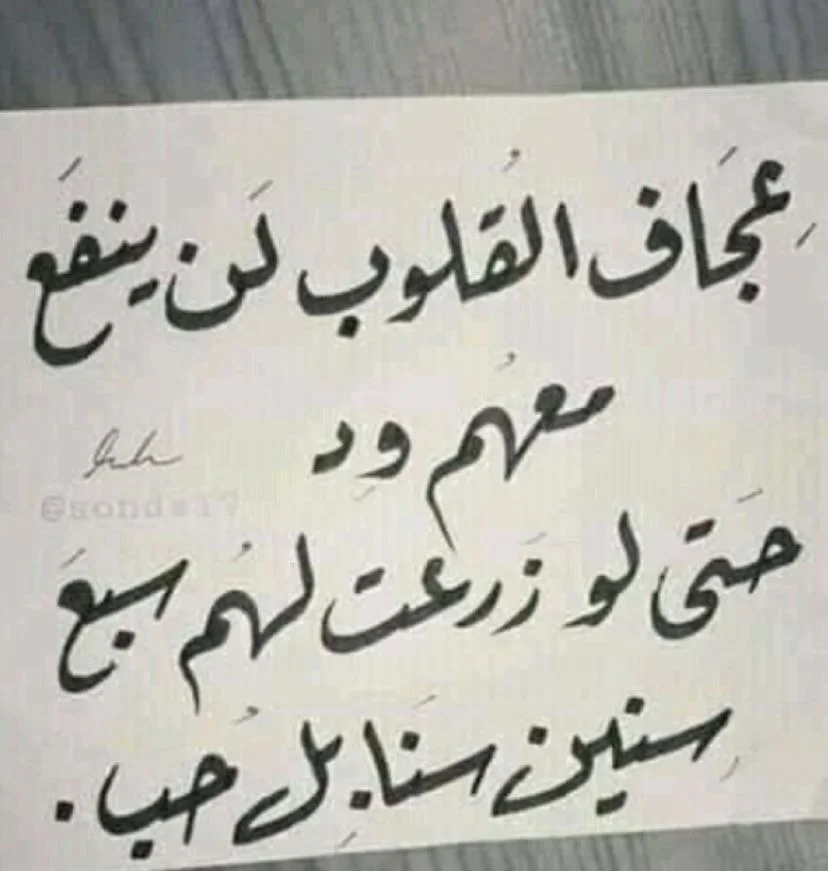 عِجَاف القُلوب لَن ينفَع
معهُم وِد
حَتى لو زَرعت لهُم سبعَ
سِنين سنَابِل حُب .
@sonds17